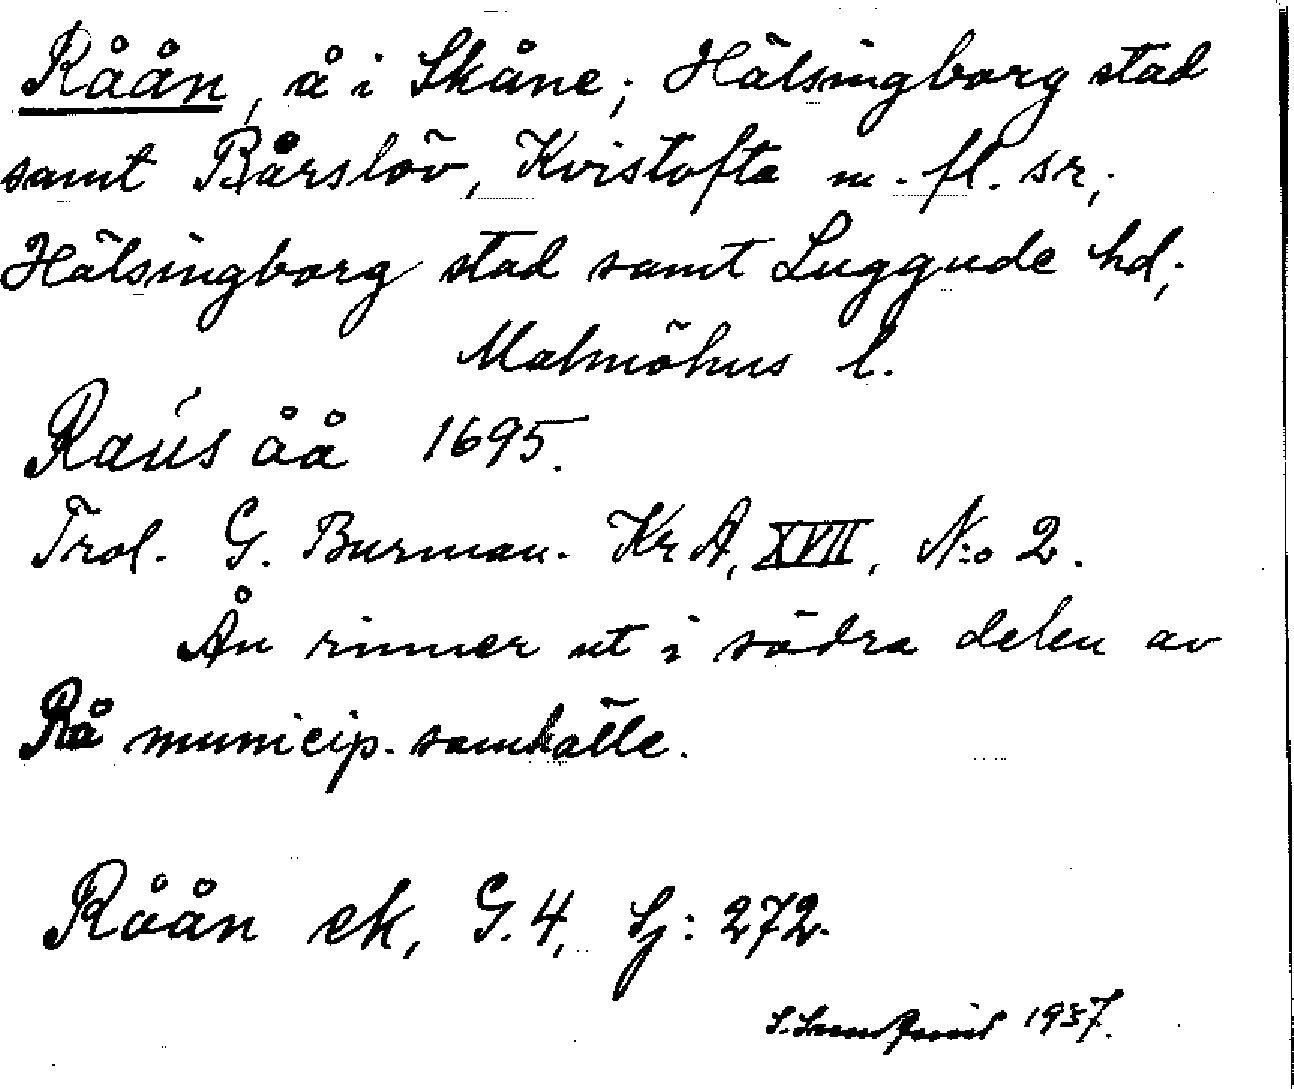 Råån, å i Skåne; Hälsingborg stad
samt Bårslöv, Kvistofta m. fl. sr;
Hälsingborg stad samt Luggude hd;
Malmöhus l.
Raús åå 1695.
Trol. G. Burman. KrA, XVII, N:o 2.
Ån rinner ut i södra delen av
Rå municip. samhälle.
Råån ek, G. 4, Sj: 272.
S. Lundquist 1937.